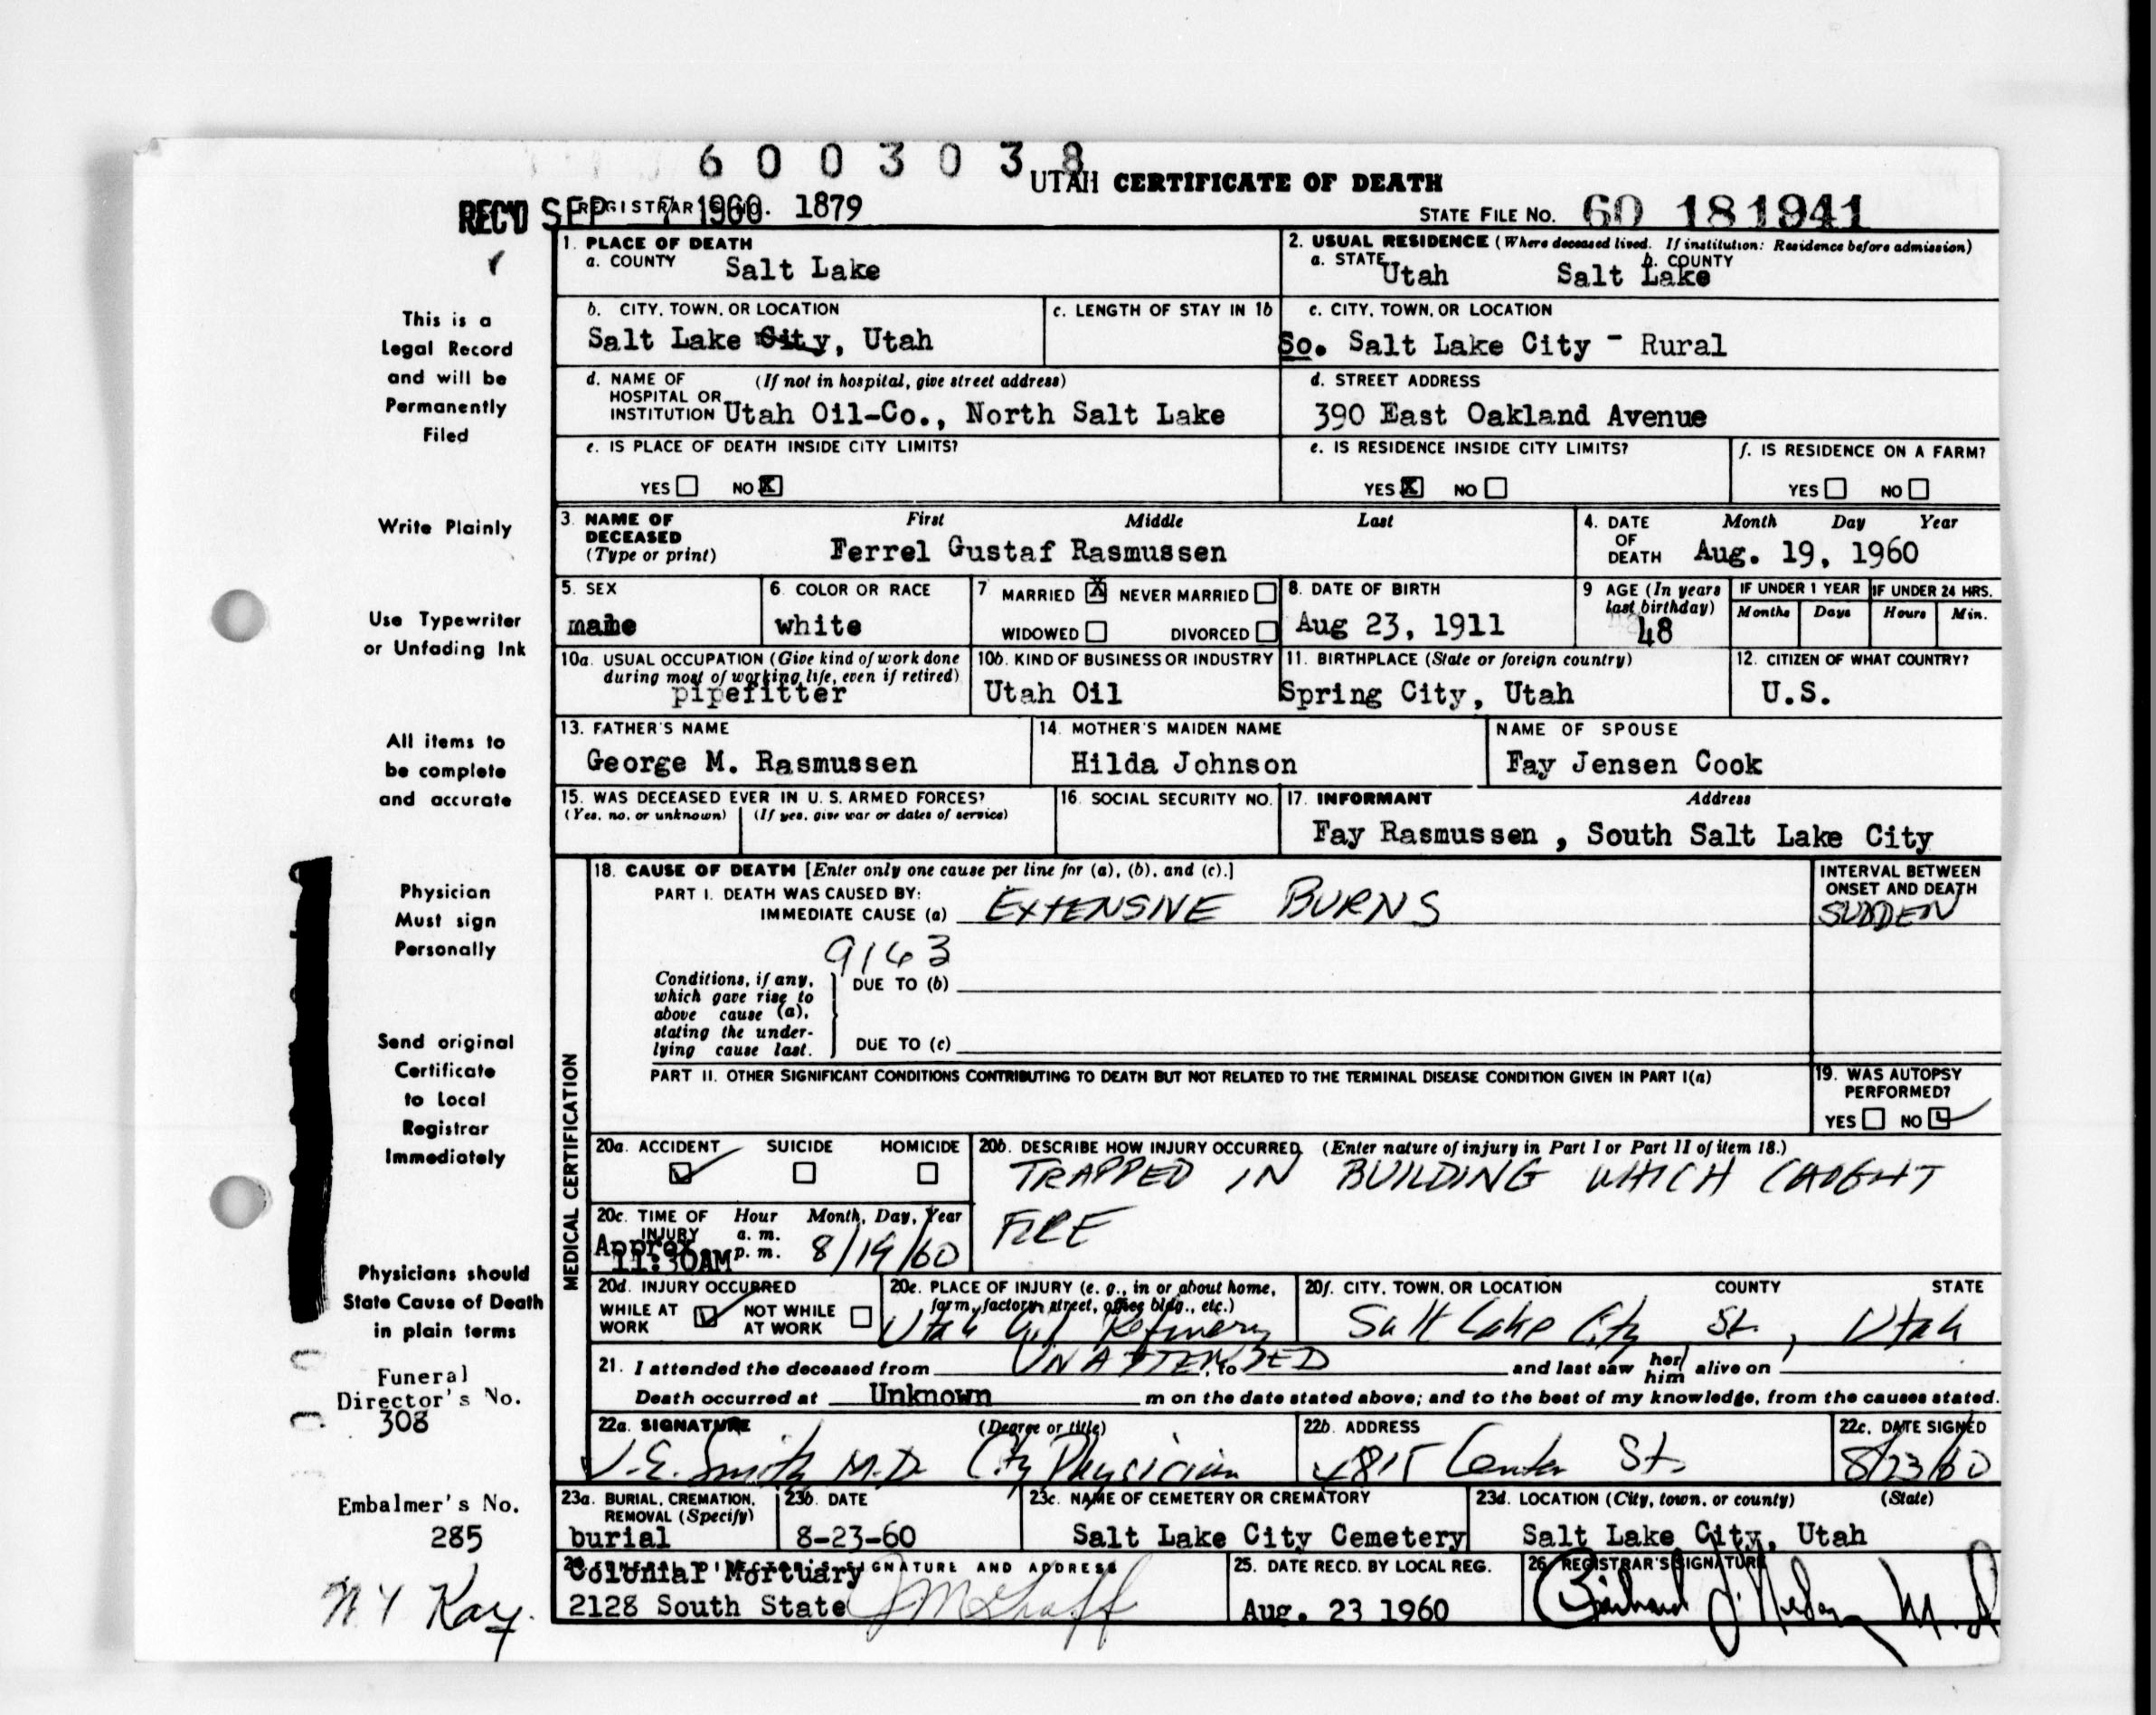 6003038
UTAH CERTIFICATE OF DEATH
REC'D SEP 7 1960 REGISTRAR'S NO. 1879
STATE FILE NO. 60 181941
1. PLACE OF DEATH
a. COUNTY Salt Lake
2. USUAL RESIDENCE (Where deceased lived. If institution: Residence before admission)
a. STATE Utah b. COUNTY Salt Lake
b. CITY, TOWN, OR LOCATION
Salt Lake City, Utah
c. LENGTH OF STAY IN 1b
c. CITY, TOWN, OR LOCATION
So. Salt Lake City - Rural
d. NAME OF HOSPITAL OR INSTITUTION (If not in hospital, give street address)
Utah Oil-Co., North Salt Lake
d. STREET ADDRESS
390 East Oakland Avenue
e. IS PLACE OF DEATH INSIDE CITY LIMITS?
YES NO X
e. IS RESIDENCE INSIDE CITY LIMITS?
YES X NO
f. IS RESIDENCE ON A FARM?
YES NO
3. NAME OF DECEASED (Type or print)
First Middle Last
Ferrel Gustaf Rasmussen
4. DATE OF DEATH
Month Day Year
Aug. 19, 1960
5. SEX
male
6. COLOR OR RACE
white
7 MARRIED X NEVER MARRIED
WIDOWED DIVORCED
8. DATE OF BIRTH
Aug 23, 1911
9 AGE (In years last birthday)
48
IF UNDER 1 YEAR
Months Days
IF UNDER 24 HRS.
Hours Min.
10a. USUAL OCCUPATION (Give kind of work done during most of working life, even if retired)
pipefitter
10b. KIND OF BUSINESS OR INDUSTRY
Utah Oil
11. BIRTHPLACE (State or foreign country)
Spring City, Utah
12. CITIZEN OF WHAT COUNTRY?
U.S.
13. FATHER'S NAME
George M. Rasmussen
14. MOTHER'S MAIDEN NAME
Hilda Johnson
NAME OF SPOUSE
Fay Jensen Cook
15. WAS DECEASED EVER IN U. S. ARMED FORCES?
(Yes, no, or unknown) (If yes, give war or dates of service)
16. SOCIAL SECURITY NO.
17. INFORMANT Address
Fay Rasmussen , South Salt Lake City
MEDICAL CERTIFICATION
18. CAUSE OF DEATH [Enter only one cause per line for (a), (b), and (c).]
PART I. DEATH WAS CAUSED BY:
IMMEDIATE CAUSE (a) EXTENSIVE BURNS
INTERVAL BETWEEN ONSET AND DEATH
SUDDEN
9163
Conditions, if any, which gave rise to above cause (a), stating the underlying cause last.
DUE TO (b)
DUE TO (c)
PART II. OTHER SIGNIFICANT CONDITIONS CONTRIBUTING TO DEATH BUT NOT RELATED TO THE TERMINAL DISEASE CONDITION GIVEN IN PART I(a)
19. WAS AUTOPSY PERFORMED?
YES NO
20a. ACCIDENT SUICIDE HOMICIDE
20b. DESCRIBE HOW INJURY OCCURRED. (Enter nature of injury in Part I or Part II of item 18.)
TRAPPED IN BUILDING WHICH CAUGHT
FIRE
20c. TIME OF INJURY Hour a. m. p. m. Month, Day, Year
Approx. 11:30AM 8/19/60
20d. INJURY OCCURRED
WHILE AT WORK NOT WHILE AT WORK
20e. PLACE OF INJURY (e. g., in or about home, farm, factory, street, office bldg., etc.)
Utah Oil Refinery
20f. CITY, TOWN, OR LOCATION COUNTY STATE
Salt Lake City SL, Utah
21. I attended the deceased from UNATTENDED, to and last saw her/him alive on
Death occurred at Unknown m on the date stated above; and to the best of my knowledge, from the causes stated.
22a. SIGNATURE (Degree or title)
J.E. Smith M.D. City Physician
22b. ADDRESS
Center St.
22c. DATE SIGNED
8/23/60
23a. BURIAL, CREMATION, REMOVAL (Specify)
burial
23b. DATE
8-23-60
23c. NAME OF CEMETERY OR CREMATORY
Salt Lake City Cemetery
23d. LOCATION (City, town, or county) (State)
Salt Lake City, Utah
24. FUNERAL DIRECTOR'S SIGNATURE AND ADDRESS
Colonial Mortuary
2128 South State
25. DATE RECD. BY LOCAL REG.
Aug. 23 1960
26. REGISTRAR'S SIGNATURE
This is a
Legal Record
and will be
Permanently
Filed
Write Plainly
Use Typewriter
or Unfading Ink
All items to
be complete
and accurate
Physician
Must sign
Personally
Send original
Certificate
to Local
Registrar
Immediately
Physicians should
State Cause of Death
in plain terms
Funeral
Director's No.
308
Embalmer's No.
285